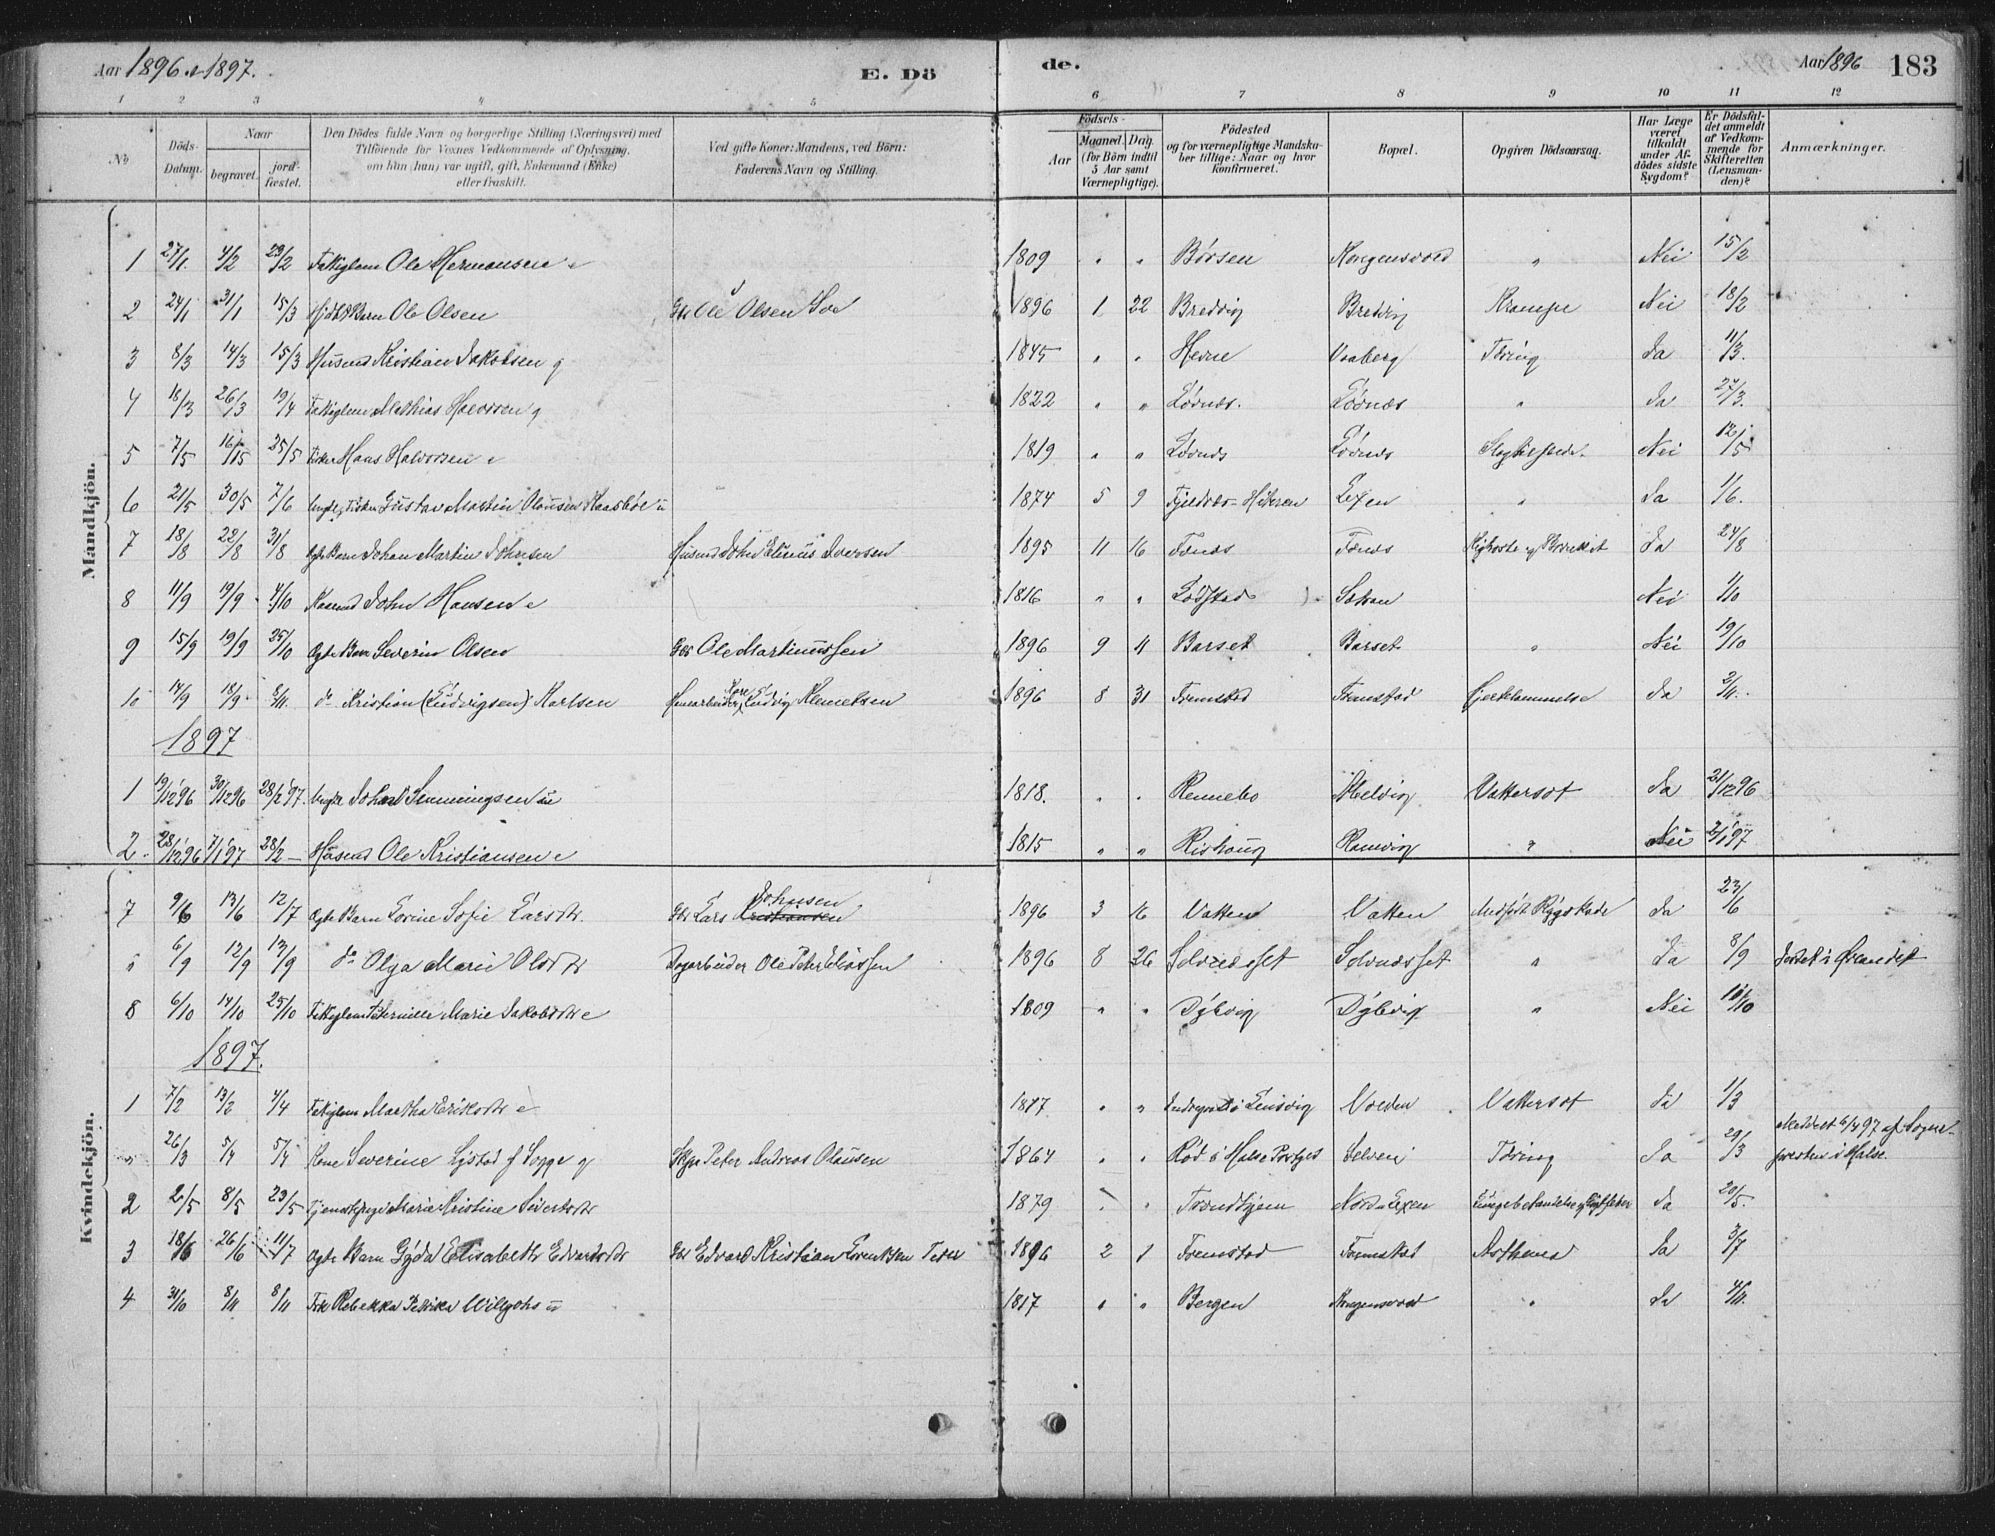 Aar 1896 & 1897.
E. Dö
de.
Aar 1896
183
1 2 3 4 5 6 7 8 9 10 11 12
No
Döds-Datum.
Naar
begravet.
jord-fæstet.
Den Dödes fulde Navn og borgerlige Stilling (Næringsvei) med
Tilföiende for Voxnes Vedkommende af Oplysning,
om han (hun) var ugift, gift, Enkemand (Enke)
eller fraskilt.
Ved gifte Koner: Mandens, ved Börn:
Faderens Navn og Stilling.
Aar
Födsels-
Maaned. Dag.
(for Börn indtil
5 Aar samt
Værnepligtige).
Födested
og for værnepligtige Mandska-
ber tillige: Naar og hvor
konfirmeret.
Bopæl.
Opgiven Dödsaarsag.
Har Læge
været
tilkaldt
under Af-
dödes sidste
Sygdom?
Er Dödsfal-
det anmeldt
af Vedkom-
mende for
Skifteretten
(Lensman-
den)?
Anmærkninger.
Mandkjön.
1 27/1. 4/2 23/2 Fattiglem Ole Hermansen e 1809 " " Børsen Kongensvold " Nei 15/2
2 24/1 31/1 15/3 Barn Ole Olsen Gbr Ole Olsen 1896 1 22 Bredvig Bredvig Krampe Nei 18/2
3 8/3 14/3 15/3 Husmd Kristian Jakobsen g 1845 " " Hevne Vaaberg Tæring Ja 11/3.
4 18/3 26/3 19/4 Fattiglem Mathias Halvorsen g 1822 " " Lødnæs. Lødnæs " Ja 27/3.
5 7/5 16/5 25/5 Hans Halvorsen e 1819 " " Lødnæs Lødnæs Nei 12/5
6 21/5 30/5 7/6 Ungk. Fisker Gustav Martin Olausen Haasbøe u 1874 5 9 Fjeldvær Hiteren Lexen " Ja 1/6.
7 18/8 22/8 31/8 Ægte Barn Johan Martin Johnsen Husmd John Elinus Iversen 1895 11 16 Fænæs Fænæs Kighoste og Bronkit Ja 24/8
8 11/9 19/9 4/10 Kaarmd John Hansen e 1816 " " Nei 1/10
9 15/9 19/9 25/10 Ægte Barn Severin Olsen Gbr Ole Martinussen 1896 9 11 Barset Barset " Nei 19/10
10 14/9 18/9 8/11. do Kristian (Ludvigsen) Karlsen Ludvig Klemetsen 1896 8 31 Fremstad Fremstad Hjertelammelse Ja 2/11.
1897
1 19/12 96 30/12 96 28/2 97. Ungk. Johan Henningsen u 1818. " " Rennebo Melvig Vattersot Ja 21/12 96
2. 28/12 96 7/1 97 28/2 — Husmd Ole Kristiansen e 1815 " " Rishaug Ramvig " Nei 2/1 97
Kvindekjön.
7 9/6 13/6 12/7 Ægte Barn Lovine Sofie Larsdtr. Gbr Lars Johnsen 1896 3 16 Vatten Vatten Medfødt Rygskade Ja 23/6
" 6/9 12/9 13/9 do Olga Marie Olsdtr Dagarbeider Ole Peter Eliassen 1896 8 26 Selvnæsset Selvnæsset " Ja 8/9 Jordet i Ørlandet
8 6/10 14/10 25/10 Fattiglem Pernille Marie Jakobsdtr e 1809 " " Dybvig Dybvig " Nei 10/10
1897.
1 7/2 13/2 4/4 Fattiglem Martha Eriksdtr e 1817 " " Lensvig Volden Vattersot Ja 1/3
" 26/3 5/4 5/4 Kone Severine Lystad f. Sagge g Skpr Peter Andreas Olausen 1864 " " Rød i Halse Prstgjd Selven Tæring Ja 29/3 Meddelt 6/4 97 af Sogne-
presten i Halse.
2 2/5 8/5 23/5 Tjenestepige Marie Kristine Sivertsdtr 1879 " " Trondhjem Nordlexen Ja 20/5.
3 18/6 26/6 11/7 Ægte Barn Gyda Elisabeth Edvardsdtr Gbr Edvard Kristian Lorentzen Teter 1896 2 1 Fremstad Fremstad Asthma Ja 3/7
4 31/10 8/11 8/11 Frk Rebekka Petrika Willgohs u 1817 " " Bergen Kongensvold " Ja 4/11.